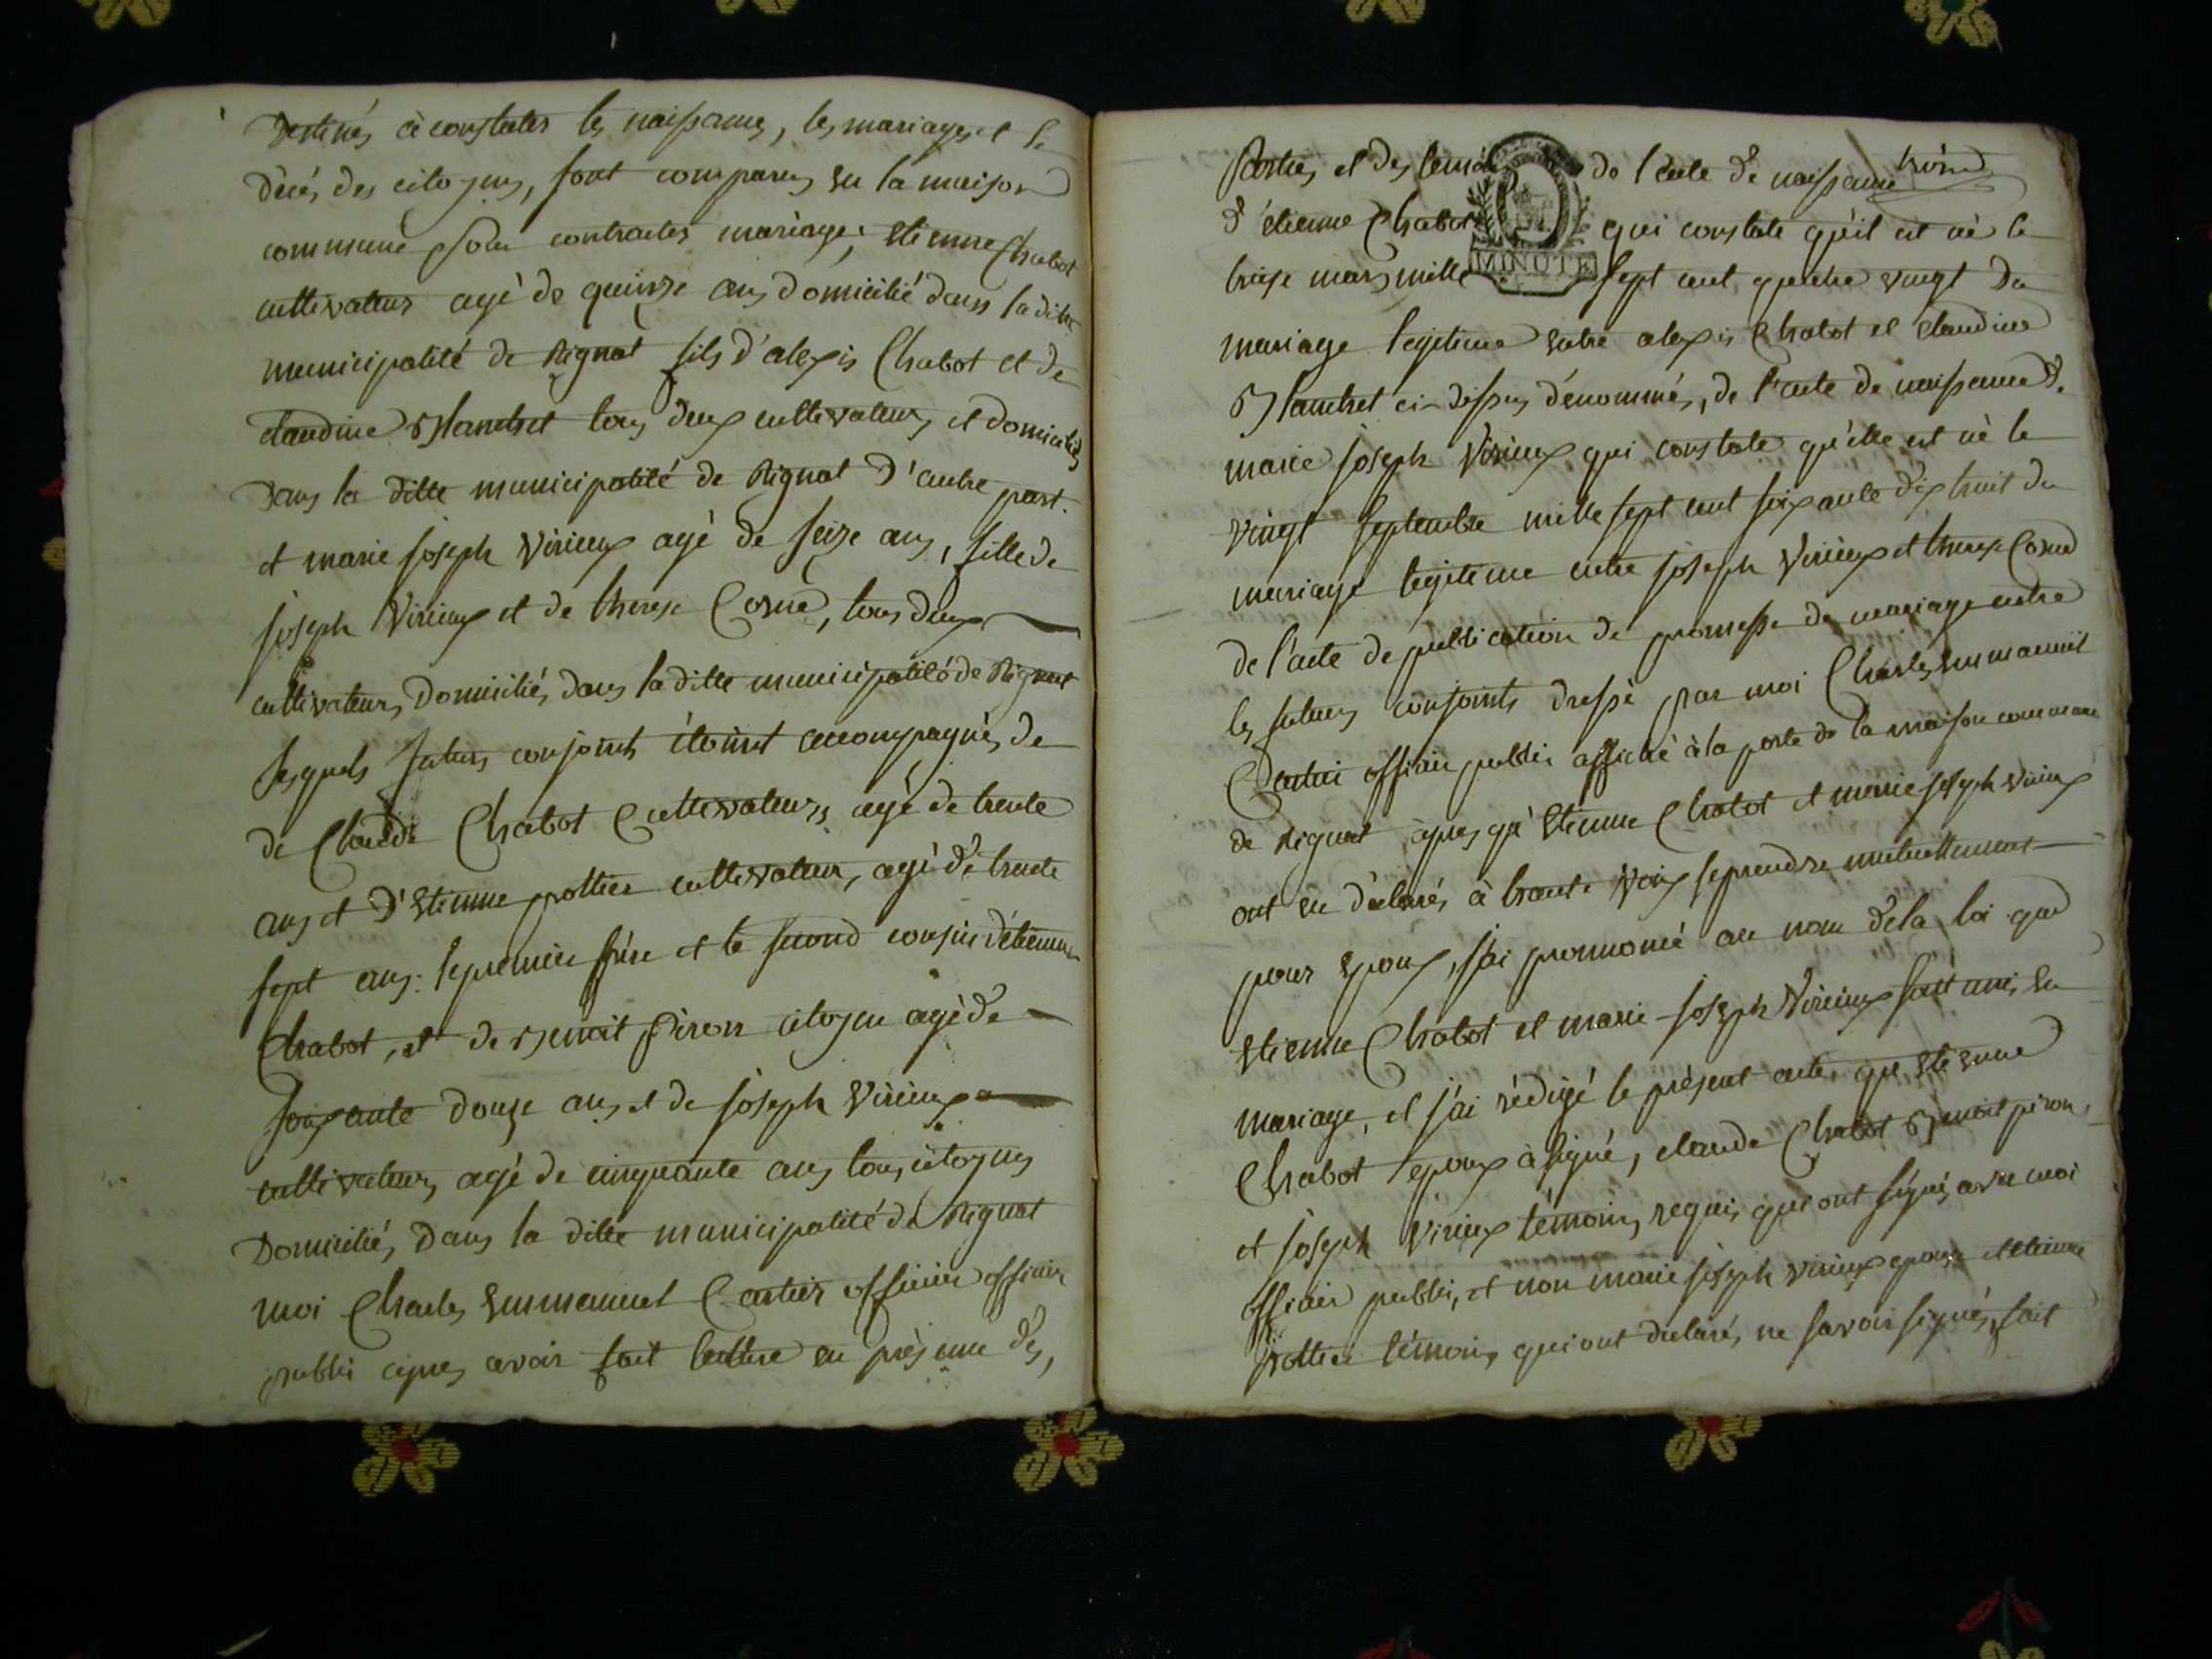 Destinés à constater les naissances, les mariages et le
décés des citoyens, sont comparus en la maison
commune pour contracter mariage; Etienne Chabot
cultivateur agé de quinze ans domicilié dans la ditte
municipalité de Rignat fils d'alexis Chabot et de
claudine Blanchet tous deux cultivateurs et domiciliés
Dans la ditte municipalité de Rignat D'autre part.
et marie joseph Virieux agé de seize ans, fille de
joseph Virieux et de therese Corne, tous deux
cultivateurs, Domiciliés dans la ditte municipalité de Rignat
lesquels futurs conjoints étoint accompagnés de
de Claude Chabot Cultivateurs agé de trente
ans et D'Etienne pottier cultivateur, agé de trente
sept ans: le premier frère et le second cousin d'étienne
Chabot, et de Benoit piron citoyen agé de
soixante douze ans et de joseph Virieux
cultivateurs agé de cinquante ans tous citoyens
Domiciliés Dans la ditte municipalité de Rignat
moi Charles Emmanuel Cartier officier officier
public apres avoir fait lecture en présence des,
Parties et des temoi de l'acte de naissance
d'étienne Chabot qui constate qu'il est né le
treize mars mille sept cent quatre vingt Du
mariage legitime entre alexis Chabot et claudine
Blanchet ci-dessus dénommés, de l'acte de naissance de
marie joseph Virieux qui constate qu'elle est né le
vingt septembre mille sept cent soixante dix huit du
mariage legitime entre joseph Virieux et therese Corne
de l'acte de publication de promesse de mariage entre
les futurs conjoints dressé par moi Charles Emmanuel
Cartier officier public affiché à la porte de la maison commune
de Rignat apres qu'Etienne Chabot et marie joseph Virieux
ont eu déclarés à haute voix se prendre mutuellement
pour epoux, j'ai prononcé au nom de la loi que
Etienne Chabot et marie joseph Virieux sont unis en
mariage, et j'ai rédigé le présent acte, que Etienne
Chabot epoux à signé, claude Chabot Benoit piron,
et joseph Virieux témoins requis, qui ont signés avec moi
officier public, et non marie joseph Virieux epouse et etienne
pottier témoins qui ont déclarés ne savoir signés, fait
MINUTE